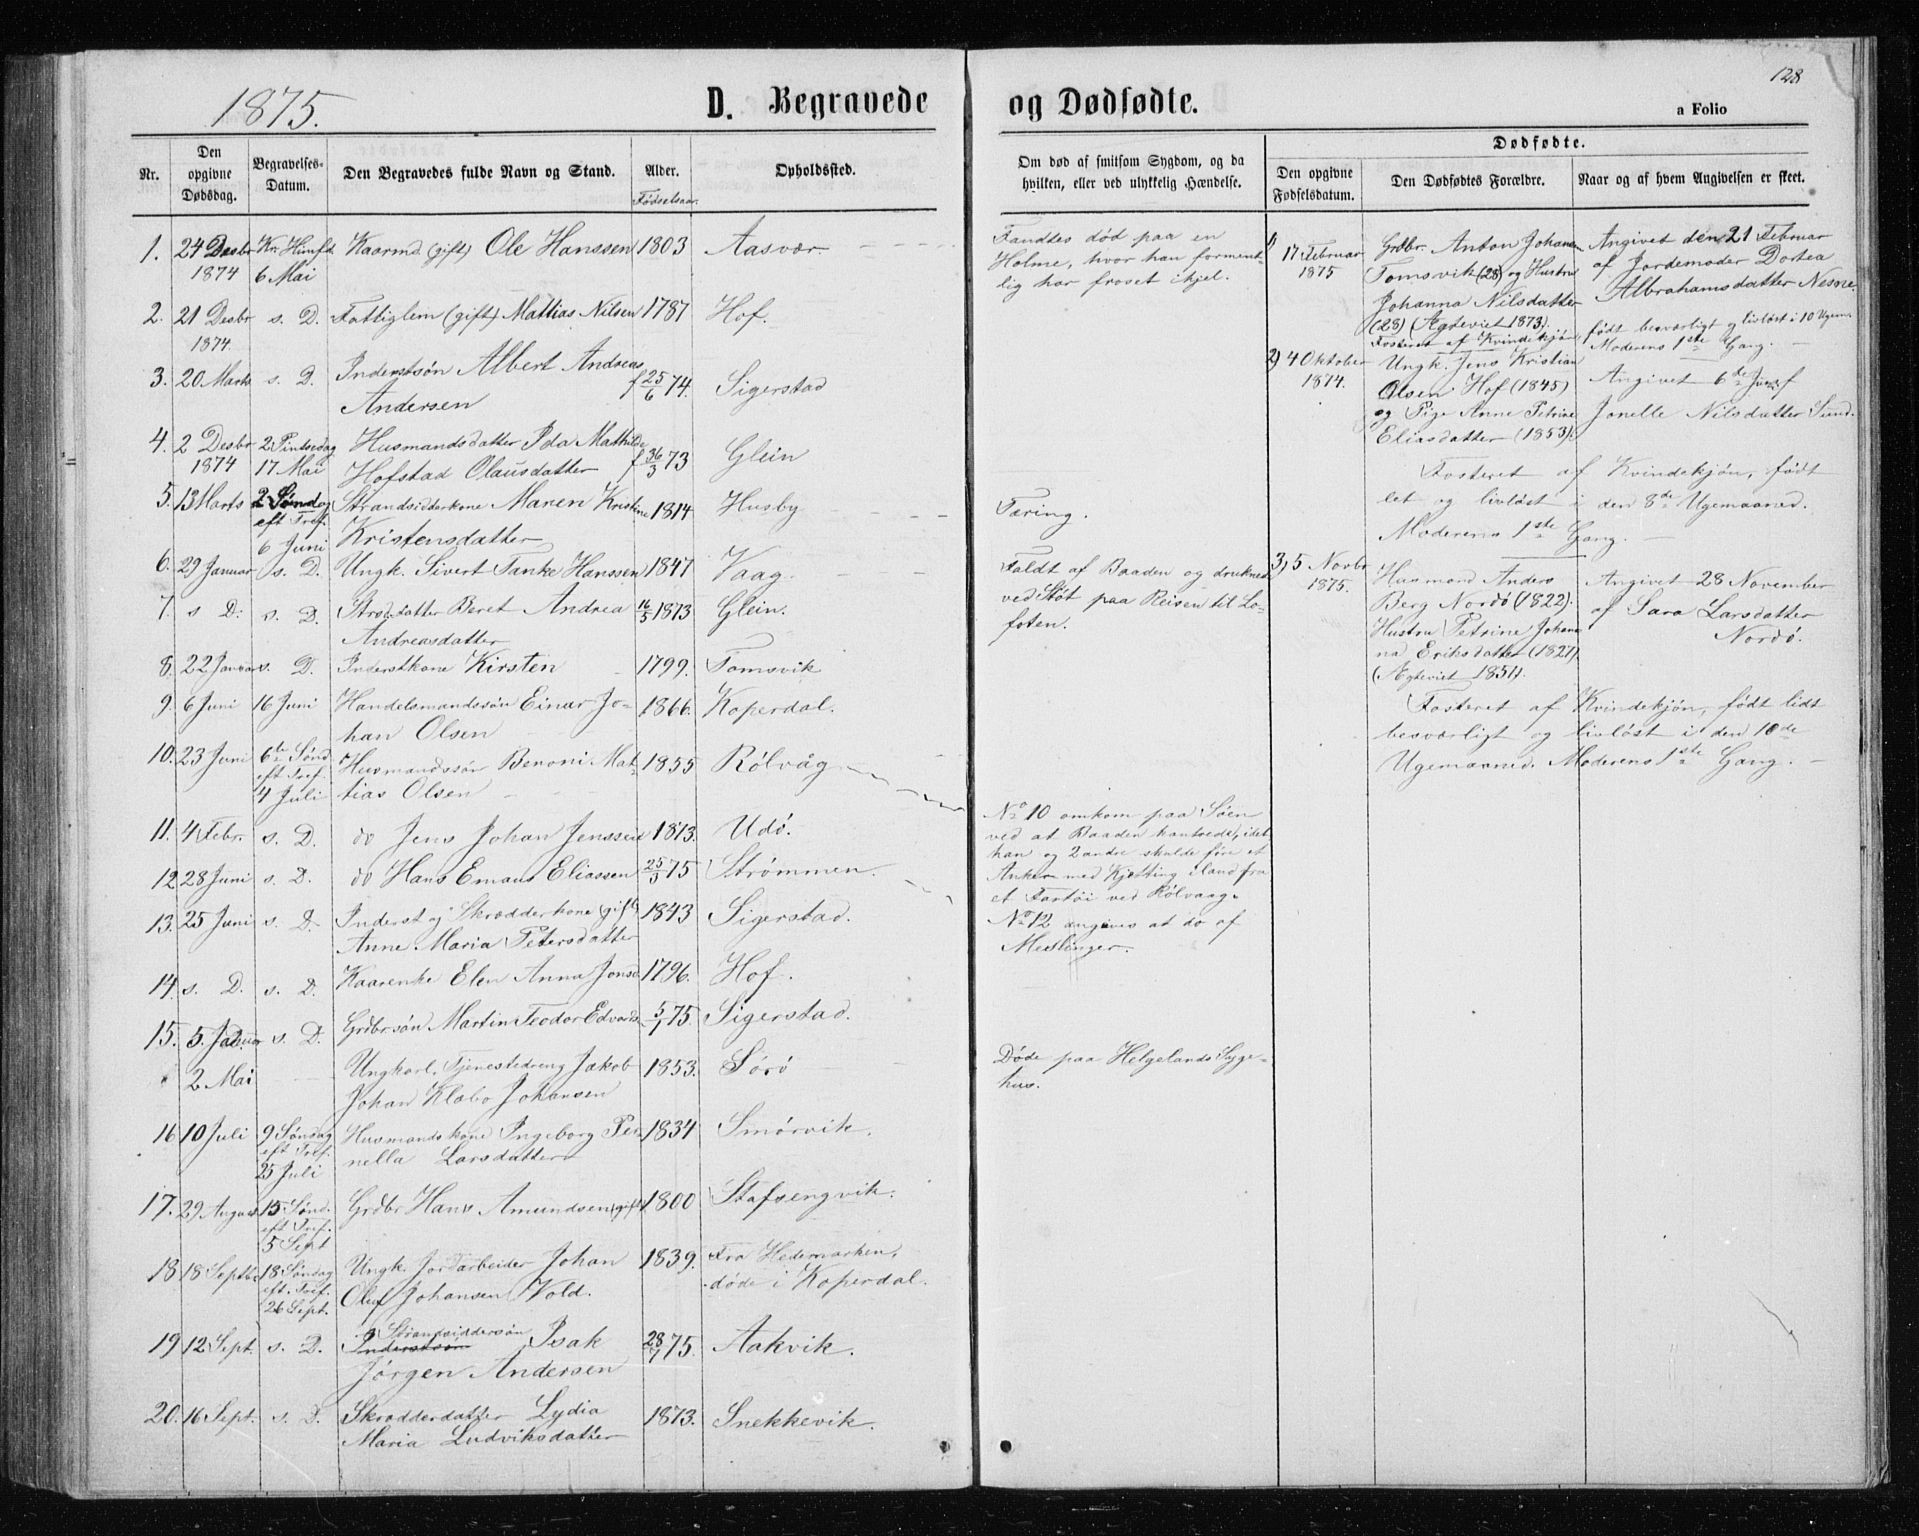 128
1875.
D. Begravede og Dødfødte.
a Folio
Nr.
Den opgivne Dødsdag.
Begravelses-Datum.
Den Begravedes fulde Navn og Stand.
Alder.
Fødselsaar.
Opholdsted.
Om død af smitsom Sygdom, og da hvilken, eller ved ulykkelig Hændelse.
Dødfødte.
Den opgivne Fødselsdatum.
Den Dødfødtes Forældre.
Naar og af hvem Angivelsen er skeet.
1. 24 Desbr Kr. Himft Kaarmd. (gift) Ole Hanssen 1803 Aasvær
1874 6 Mai
2. 21 Desbr s. D. Fattiglem (gift) Mathias Nilsen 1787 Hof.
1874.
3. 20 Marts s. D. Inderstsøn Albert Andreas f 25/6 74. Sigerstad
Andersen
4. 2 Desbr 2 Pintsedag Husmandsdatter Ida Mathilde Glein
1874 17 Mai Hofstad Olausdatter
5. 13 Marts 2 Søndag Strandsidderkone Maren Kristine 1814 Husby
eft Tref. Kristensdatter
6 Juni
6. 29 Januar s. D. Ungk. Sivert Tanke Hanssen 1847 Vaag
7. s D. s. D. Strdsdatter Beret Andrea 16/5 1873 Glein.
Andreasdatter
8. 22 Januar s. D. Inderstkone Kirsten 1799. Tomsvik
9. 6 Juni 16 Juni Handelsmandssøn Einar Jo- 1866. Koperdal.
han Olsen
10. 23 Juni 6te Sønd Husmandssøn Benoni Mat- 1855 Rølvåg
eft Tref. tias Olsen
4 Juli
11. 4 Febr. s. D. do Jens Johan Jenssen 1873. Udø.
12 28 Juni s. D. do Hans Emaus Eliassen 75 Strømmen.
13. 25 Juni s. D. Inderst og Skrædderkone (gift) 1843 Sigerstad.
Anne Maria Petersdatter
14. s. D. s. D. Kaarenke Elen Anna Jonsd. 1796. Hof.
15. 5. Januar s. D. Grdbrsøn Martin Teodor Edvards. 5/1 75 Sigerstad.
2 Mai Ungkarl, Tjenestedreng Jakob 1853. Sørø
Johan Klæbo Johansen
16 10 Juli 9 Søndag Husmandskone Ingeborg Per- 1834 Smørvik.
eft Tref. nella Larsdatter
25 Juli
17. 29 August 15 Sønd. Grdbr Hans Amundsen (gift) 1800 Stafsengvik.
eft Tref.
5 Sept
18 18 Septbr 18 Søndag Ungk. Jordarbeider Johan 1839. Fra Hedemarken,
eft. Tref. Oluf Johansen Vold. døde i Koperdal.
26 Sept.
19 12 Sept. s. D. Strandsiddersøn
Inderstsøn Isak 28/7 75. Aakvik.
Jørgen Andersen
20. 16 Sept. s. D. Skrædderdatter Lydia 1873. Snekkevik.
Maria Ludviksdatter
Fandtes død paa en
Holme, hvor han forment-
lig har froset ihjel.
Tæring.
Faldt af Baaden og druknede
ved Støt paa Reisen til Lo-
foten.
No 10 omkom paa Søen
ved at Baaden kantrede, idet
han og 2 andre skulde føre et
Anker med Kjetting iland fra
et Fartøi ved Rølvaag.
No 12 angives at do af
Meslinger.
Døde paa Helgelands Syge-
hus.
1) 17 Februar Grdbr. Anton Johansen Angivet den 21 Februar
1875 Tomsvik (28) og Hustru af Jordemoder Dortea
Johanna Nilsdatter Albrahamsdatter Nesne.
(28) (Ægteviet 1873). født besværligt og livløst i 10 Ugem.
Fosteret af Kvindekjøn Moderens 1ste Gang.
2) 4 Oktober Ungk. Jens Kristian Angivet 6de Juni af
1874. Olsen Hof (1845) Jonelle Nilsdatter Sund.
og Pige Anne Petrine
Eliasdatter (1853).
Fosteret af Kvindekjøn, født
let og livløst i den 8de Ugemaaned.
Moderens 1ste Gang.
3) 5 Novbr Husmand Anders Angivet 28 November
1875. Berg Nordø (1822). af Sara Larsdatter
Hustru Petrine Johan- Nordø.
na Eriksdatter (1827)
(Ægteviet 1851).
Fosteret af Kvindekjøn, født lidt
besværligt og livløst i den 10de
Ugemaaned. Moderens 1ste Gang.